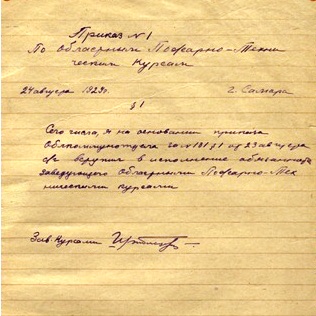 Приказ №1
По Областным Пожарно-Техни
ческим Курсам
24 августа 1923 г. г. Самара
§ 1
Сего числа, я на основании приказа
за № 181 § 1 от 23 августа
с/г вступил в исполнение обязанностей
заведующего Областными Пожарно-Тех
ническими курсами
Зав. Курсами